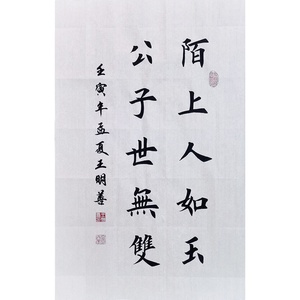 陌上人如玉
公子世無雙
壬寅年孟夏王明善